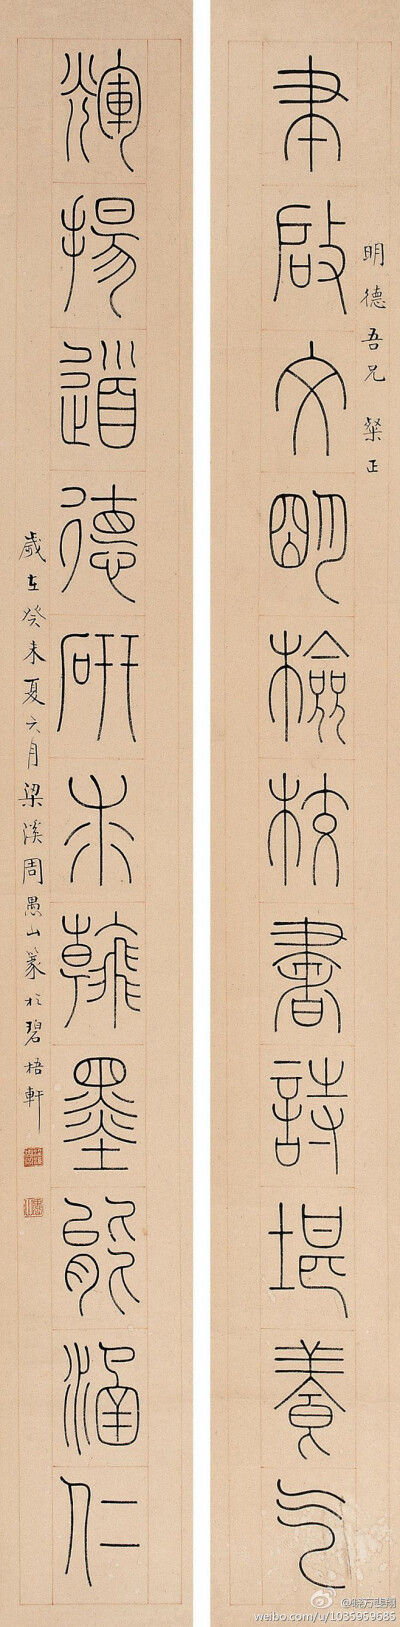 明德吾兄 粲正
聿啟文明檢校書詩堪養气
煇揚道德研朱翰墨能涵仁
歲在癸未夏六月梁溪周愚山篆於碧梧軒
weibo.com/u/1035959685